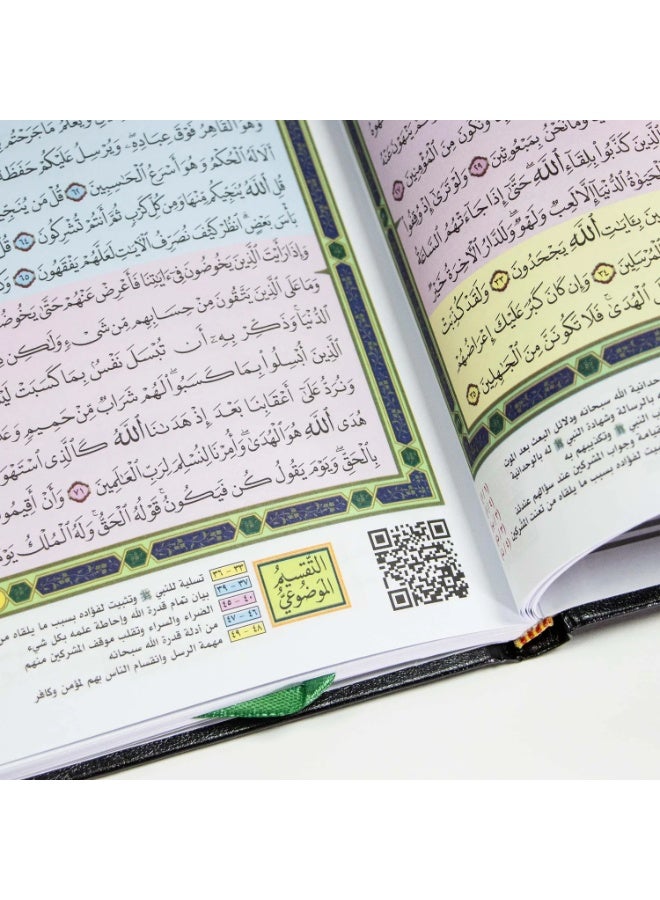 يَنْهَوْنَ عَنْهُ
وَنَكُونَ مِنَ الْمُؤْمِنِينَ
وَمَا نَحْنُ بِمَبْعُوثِينَ ۝٢٩ وَلَوْ تَرَىٰ إِذْ وُقِفُوا
الَّذِينَ كَذَّبُوا بِلِقَاءِ اللَّهِ حَتَّىٰ إِذَا جَاءَتْهُمُ السَّاعَةُ
الْحَيَوٰةُ الدُّنْيَا إِلَّا لَعِبٌ وَلَهْوٌ وَلَلدَّارُ الْآخِرَةُ خَيْرٌ
بِـَٔايَٰتِ اللَّهِ يَجْحَدُونَ ۝٣٣ وَلَقَدْ كُذِّبَتْ
الْمُرْسَلِينَ ۝٣٤ وَإِن كَانَ كَبُرَ عَلَيْكَ إِعْرَاضُهُمْ
الْهُدَىٰ فَلَا تَكُونَنَّ مِنَ الْجَٰهِلِينَ ۝٣٥
وحدانية الله سبحانه ودلائل البعث بعد الموت
بالرسالة وشهادة النبي ﷺ له بالوحدانية
النبي ﷺ وتكذيبهم به
القيامة وجواب المشركين عند سؤالهم عندئذ
لفؤاده بسبب ما يلقاه من تعنت المشركين
وَهُوَ الْقَاهِرُ فَوْقَ عِبَادِهِ وَيُرْسِلُ عَلَيْكُمْ حَفَظَةً
أَلَا لَهُ الْحُكْمُ وَهُوَ أَسْرَعُ الْحَٰسِبِينَ ۝٦٢ قُلْ مَن يُنَجِّيكُم
قُلِ اللَّهُ يُنَجِّيكُم مِّنْهَا وَمِن كُلِّ كَرْبٍ ثُمَّ أَنتُمْ تُشْرِكُونَ ۝٦٤ قُلْ
بَأْسَ بَعْضٍ انظُرْ كَيْفَ نُصَرِّفُ الْآيَٰتِ لَعَلَّهُمْ يَفْقَهُونَ ۝٦٥
وَإِذَا رَأَيْتَ الَّذِينَ يَخُوضُونَ فِي ءَايَٰتِنَا فَأَعْرِضْ عَنْهُمْ حَتَّىٰ يَخُوضُوا
وَمَا عَلَى الَّذِينَ يَتَّقُونَ مِنْ حِسَابِهِم مِّن شَيْءٍ وَلَٰكِن
الدُّنْيَا وَذَكِّرْ بِهِ أَن تُبْسَلَ نَفْسٌ بِمَا كَسَبَتْ لَيْسَ
الَّذِينَ أُبْسِلُوا بِمَا كَسَبُوا لَهُمْ شَرَابٌ مِّنْ حَمِيمٍ
وَنُرَدُّ عَلَىٰ أَعْقَابِنَا بَعْدَ إِذْ هَدَىٰنَا اللَّهُ كَالَّذِي اسْتَهْوَتْهُ
هُدَى اللَّهِ هُوَ الْهُدَىٰ وَأُمِرْنَا لِنُسْلِمَ لِرَبِّ الْعَٰلَمِينَ ۝٧١ وَأَنْ أَقِيمُوا
بِالْحَقِّ وَيَوْمَ يَقُولُ كُن فَيَكُونُ قَوْلُهُ الْحَقُّ وَلَهُ الْمُلْكُ يَوْمَ
التَّقْسِيمُ
المَوْضُوعِيُّ
٣٣ - ٣٦ تسلية للنبي ﷺ وتثبيت لفؤاده بسبب ما يلقاه من
٣٧ - ٣٩ بيان تمام قدرة الله وإحاطة علمه بكل شيء
٤٠ - ٤٥ الضراء والسراء وتقلب موقف المشركين منهم
٤٦ - ٤٧ من أدلة قدرة الله سبحانه
٤٨ - ٤٩ مهمة الرسل وانقسام الناس بهم لمؤمن وكافر